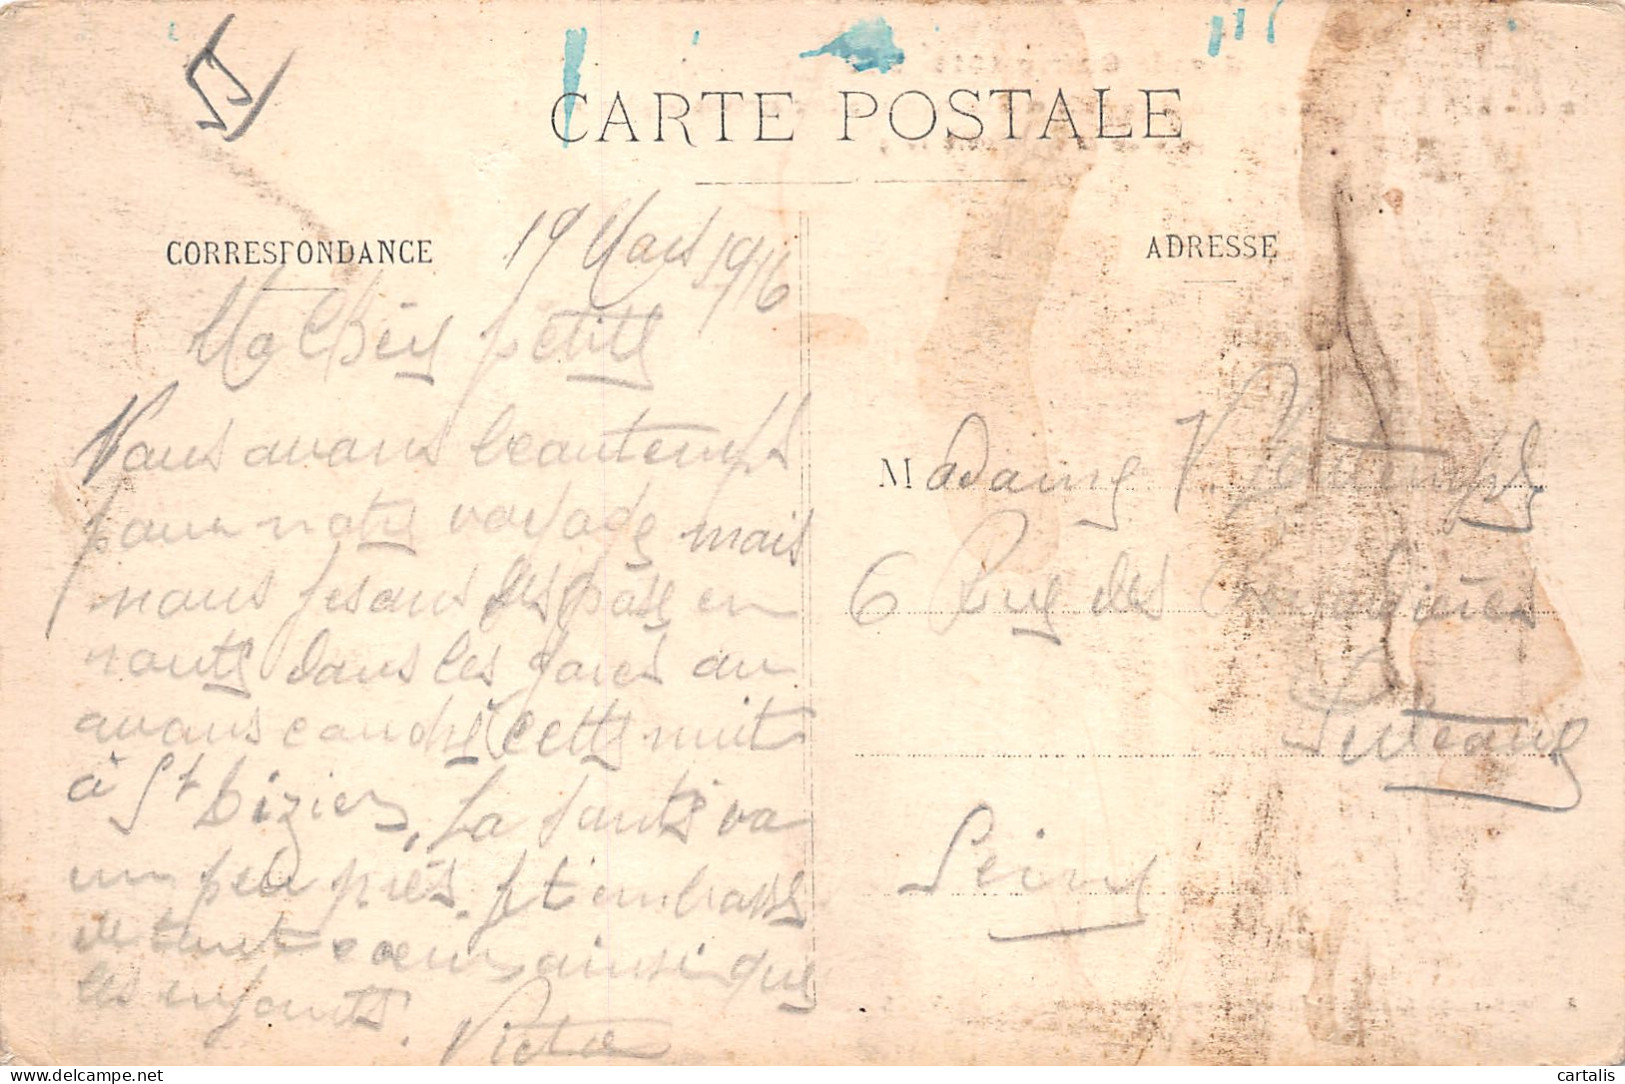 CARTE POSTALE
CORRESPONDANCE
ADRESSE
19 Mars 1916
Ma Chère petite
Nous avons beau temps
pour notre voyage mais
nous fesons des pose en
route dans les gares on
avons couché cette nuit
à St Dizier, La santé va
un peu près. Je t'embrasse
de tout coeur ainsi que
les enfants.
Victor
Madame V.
6 Rue des
Puteaux
Seine
cartalis